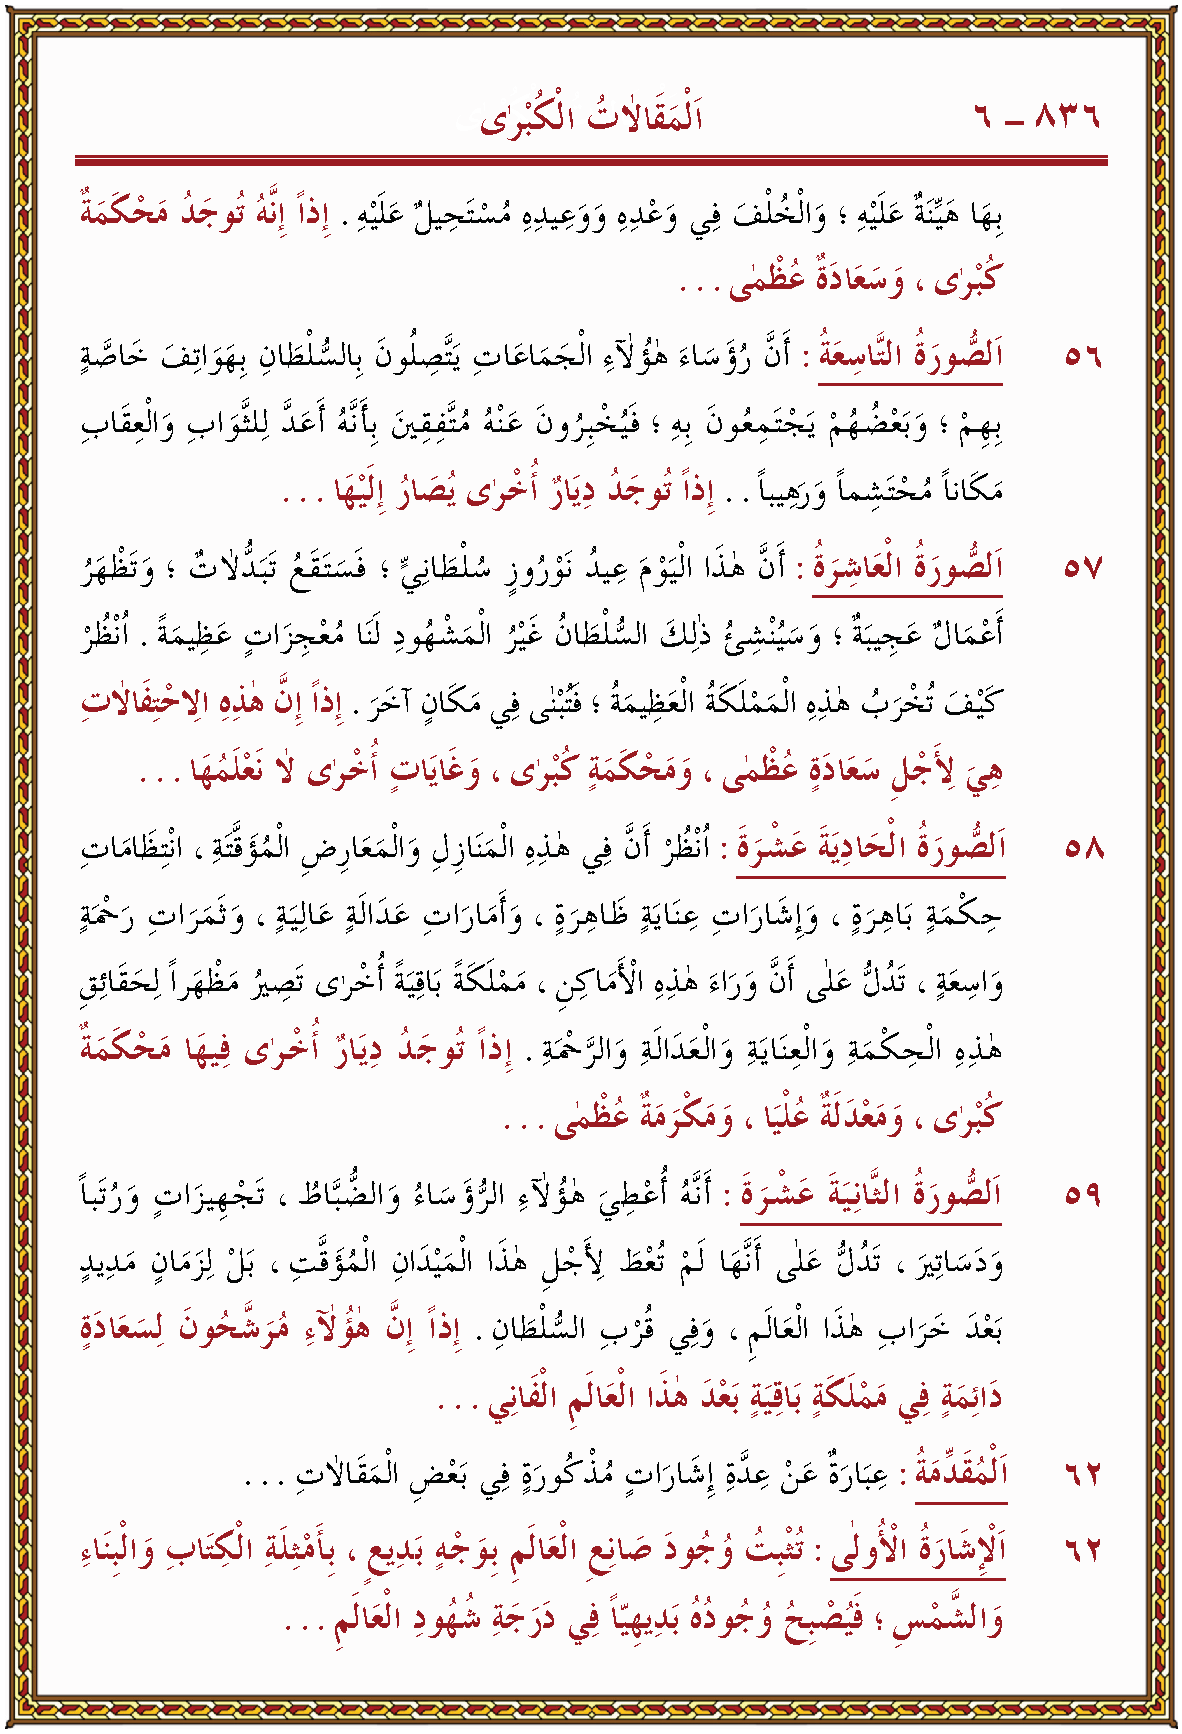 ٨٣٦ – ٦ اَلْمَقَالَاتُ الْكُبْرٰى
بِهَا هَيِّنَةٌ عَلَيْهِ ؛ وَالْخُلْفَ فِي وَعْدِهِ وَوَعِيدِهِ مُسْتَحِيلٌ عَلَيْهِ . إِذاً إِنَّهُ تُوجَدُ مَحْكَمَةٌ
كُبْرٰى ، وَسَعَادَةٌ عُظْمٰى . . .
٥٦ اَلصُّورَةُ التَّاسِعَةُ : أَنَّ رُؤَسَاءَ هٰؤُلَآءِ الْجَمَاعَاتِ يَتَّصِلُونَ بِالسُّلْطَانِ بِهَوَاتِفَ خَاصَّةٍ
بِهِمْ ؛ وَبَعْضُهُمْ يَجْتَمِعُونَ بِهِ ؛ فَيُخْبِرُونَ عَنْهُ مُتَّفِقِينَ بِأَنَّهُ أَعَدَّ لِلثَّوَابِ وَالْعِقَابِ
مَكَاناً مُحْتَشِماً وَرَهِيباً . . إِذاً تُوجَدُ دِيَارٌ أُخْرٰى يُصَارُ إِلَيْهَا . . .
٥٧ اَلصُّورَةُ الْعَاشِرَةُ : أَنَّ هٰذَا الْيَوْمَ عِيدُ نَوْرُوزٍ سُلْطَانِيٍّ ؛ فَسَتَقَعُ تَبَدُّلَاتٌ ؛ وَتَظْهَرُ
أَعْمَالٌ عَجِيبَةٌ ؛ وَسَيُنْشِئُ ذٰلِكَ السُّلْطَانُ غَيْرُ الْمَشْهُودِ لَنَا مُعْجِزَاتٍ عَظِيمَةً . اُنْظُرْ
كَيْفَ تُخْرَبُ هٰذِهِ الْمَمْلَكَةُ الْعَظِيمَةُ ؛ فَتُبْنٰى فِي مَكَانٍ آخَرَ . إِذاً إِنَّ هٰذِهِ الِاحْتِفَالَاتِ
هِيَ لِأَجْلِ سَعَادَةٍ عُظْمٰى ، وَمَحْكَمَةٍ كُبْرٰى ، وَغَايَاتٍ أُخْرٰى لَا نَعْلَمُهَا . . .
٥٨ اَلصُّورَةُ الْحَادِيَةَ عَشْرَةَ : اُنْظُرْ أَنَّ فِي هٰذِهِ الْمَنَازِلِ وَالْمَعَارِضِ الْمُؤَقَّتَةِ ، انْتِظَامَاتِ
حِكْمَةٍ بَاهِرَةٍ ، وَإِشَارَاتِ عِنَايَةٍ ظَاهِرَةٍ ، وَأَمَارَاتِ عَدَالَةٍ عَالِيَةٍ ، وَثَمَرَاتِ رَحْمَةٍ
وَاسِعَةٍ ، تَدُلُّ عَلٰى أَنَّ وَرَاءَ هٰذِهِ الْأَمَاكِنِ ، مَمْلَكَةً بَاقِيَةً أُخْرٰى تَصِيرُ مَظْهَراً لِحَقَائِقِ
هٰذِهِ الْحِكْمَةِ وَالْعِنَايَةِ وَالْعَدَالَةِ وَالرَّحْمَةِ . إِذاً تُوجَدُ دِيَارٌ أُخْرٰى فِيهَا مَحْكَمَةٌ
كُبْرٰى ، وَمَعْدَلَةٌ عُلْيَا ، وَمَكْرَمَةٌ عُظْمٰى . . .
٥٩ اَلصُّورَةُ الثَّانِيَةَ عَشْرَةَ : أَنَّهُ أُعْطِيَ هٰؤُلَآءِ الرُّؤَسَاءُ وَالضُّبَّاطُ ، تَجْهِيزَاتٍ وَرُتَباً
وَدَسَاتِيرَ ، تَدُلُّ عَلٰى أَنَّهَا لَمْ تُعْطَ لِأَجْلِ هٰذَا الْمَيْدَانِ الْمُؤَقَّتِ ، بَلْ لِزَمَانٍ مَدِيدٍ
بَعْدَ خَرَابِ هٰذَا الْعَالَمِ ، وَفِي قُرْبِ السُّلْطَانِ . إِذاً إِنَّ هٰؤُلَآءِ مُرَشَّحُونَ لِسَعَادَةٍ
دَائِمَةٍ فِي مَمْلَكَةٍ بَاقِيَةٍ بَعْدَ هٰذَا الْعَالَمِ الْفَانِي . . .
٦٢ اَلْمُقَدِّمَةُ : عِبَارَةٌ عَنْ عِدَّةِ إِشَارَاتٍ مُذْكُورَةٍ فِي بَعْضِ الْمَقَالَاتِ . . .
٦٢ اَلْإِشَارَةُ الْأُولٰى : تُثْبِتُ وُجُودَ صَانِعِ الْعَالَمِ بِوَجْهٍ بَدِيعٍ ، بِأَمْثِلَةِ الْكِتَابِ وَالْبِنَاءِ
وَالشَّمْسِ ؛ فَيُصْبِحُ وُجُودُهُ بَدِيهِيّاً فِي دَرَجَةِ شُهُودِ الْعَالَمِ . . .